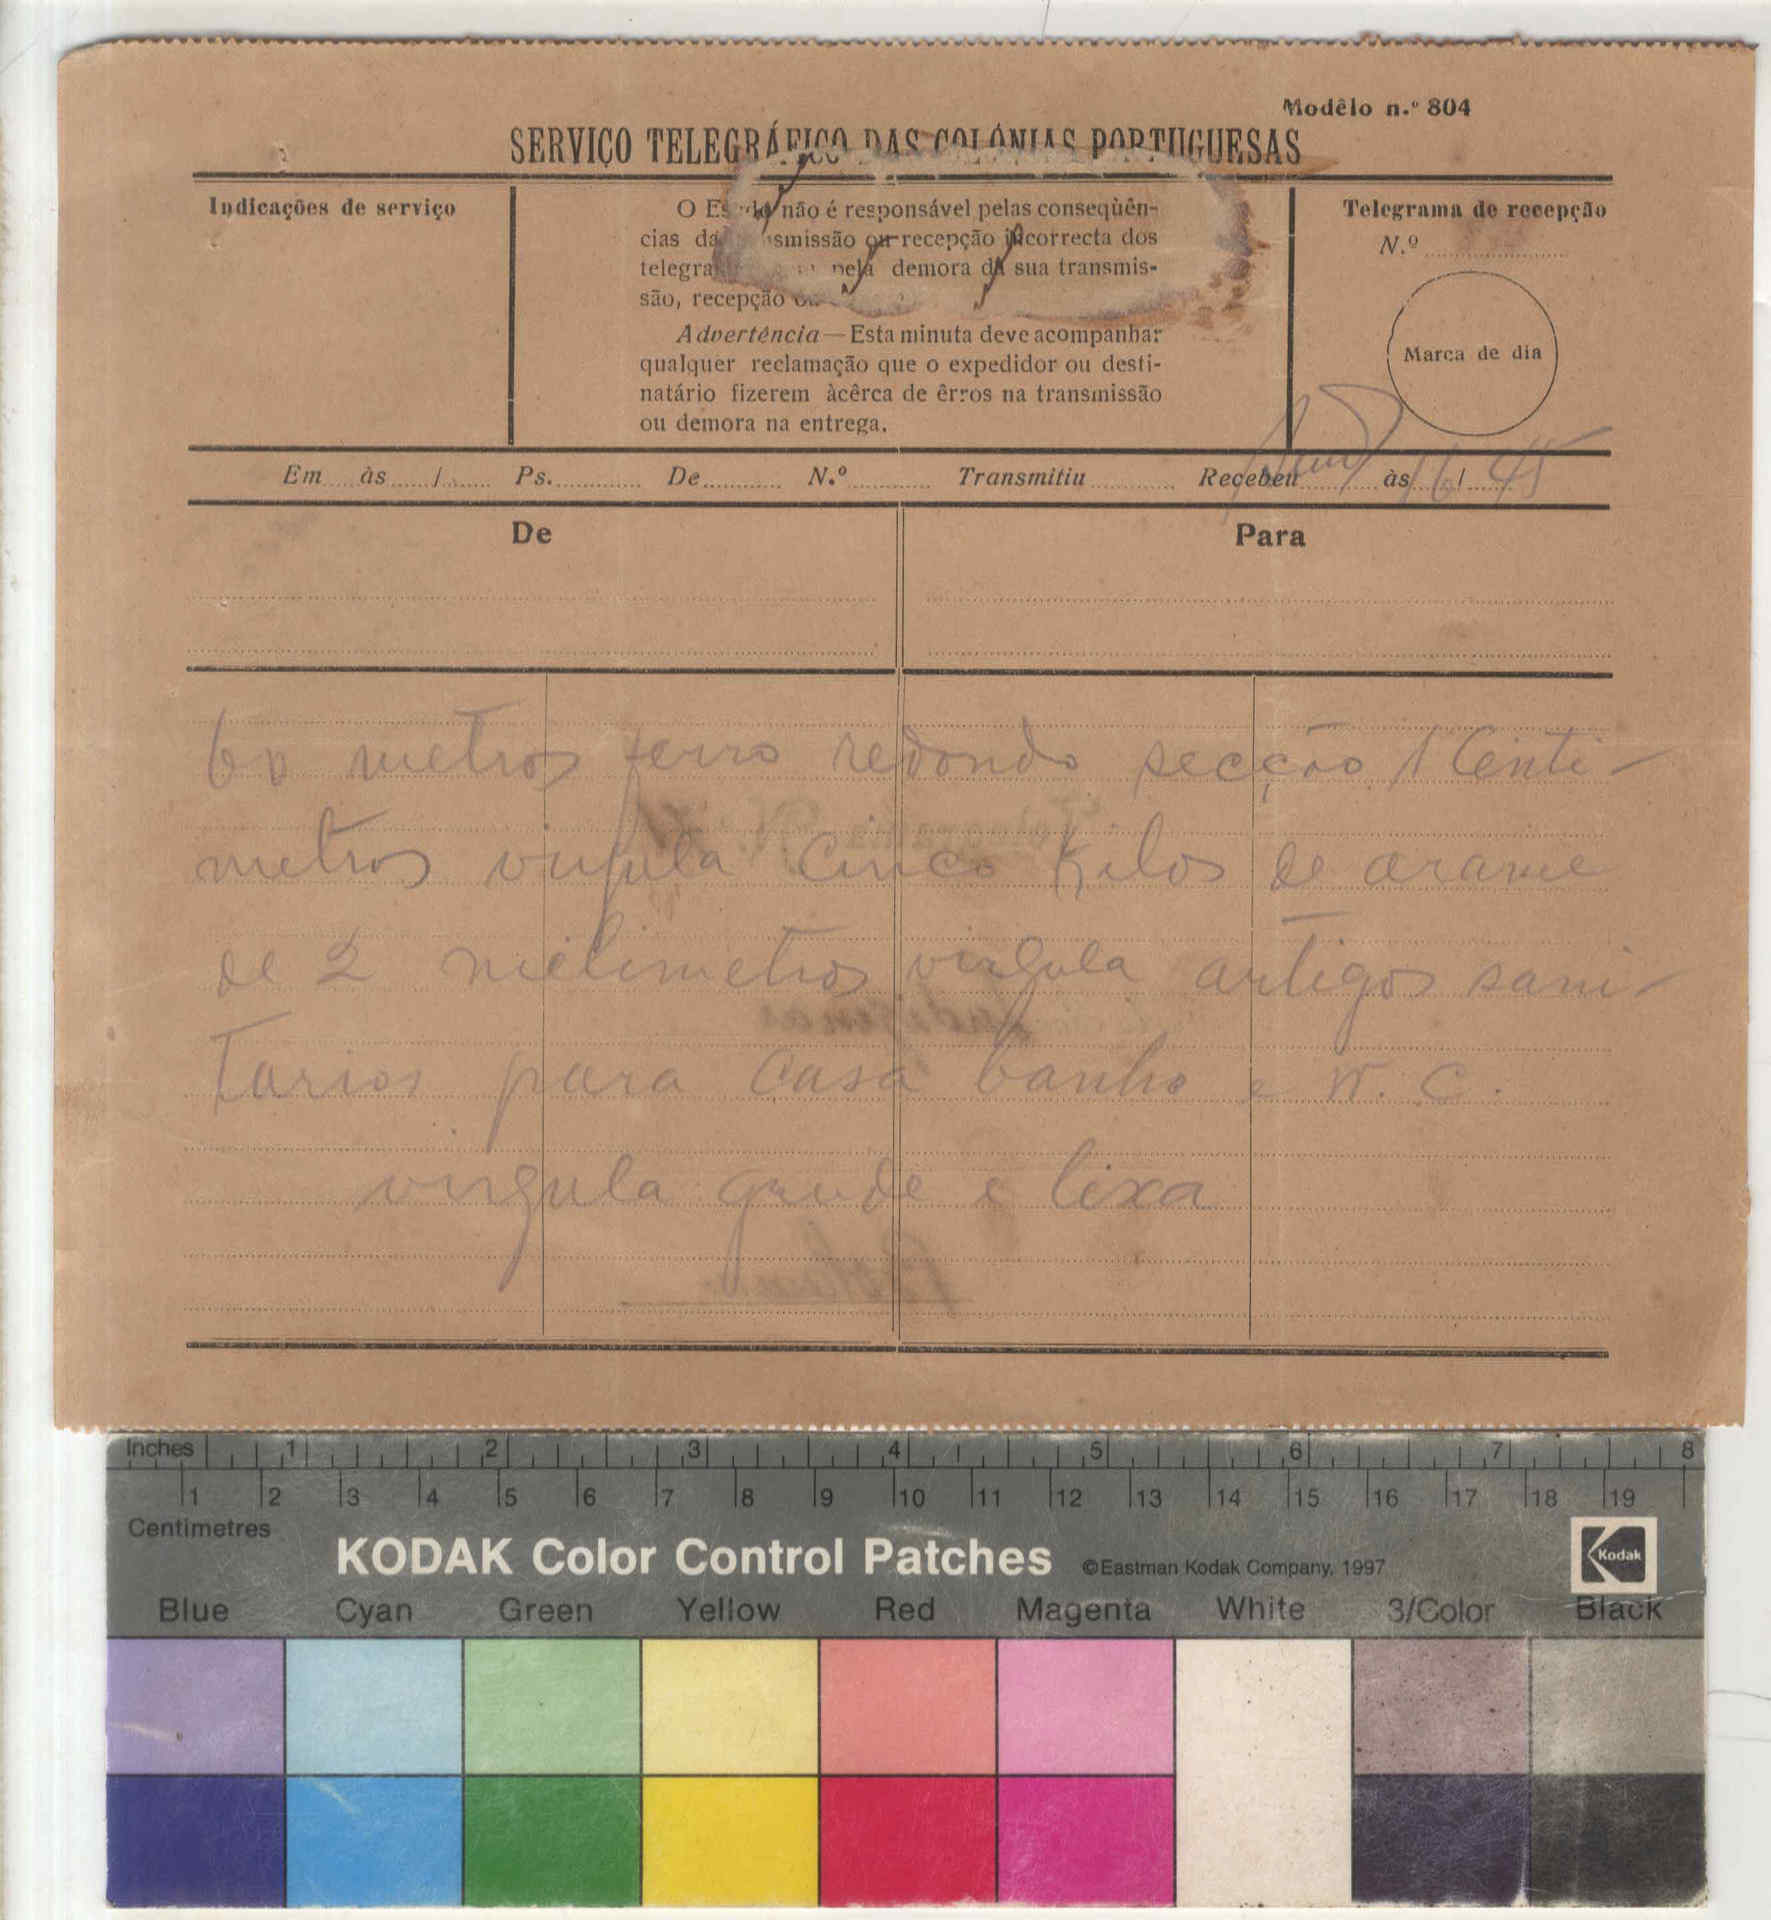 Modêlo n.º 804
SERVIÇO TELEGRÁFICO DAS COLÓNIAS PORTUGUESAS
Indicações de serviço
O Es do não é responsável pelas conseqùên-
cias da smissão ou recepção incorrecta dos
telegra pela demora da sua transmis-
são, recepção ou
Advertência—Esta minuta deve acompanhar
qualquer reclamação que o expedidor ou desti-
natário fizerem àcêrca de êrros na transmissão
ou demora na entrega.
Telegrama de recepção
N.º
Marca de dia
Em às / Ps. De N.º Transmitiu Recebeu às 16 / 45
De
Para
60 metros ferro redondo secção 1 Centi-
metros virgula cinco Kilos de arame
de 2 milimetros virgula artigos sani-
tarios para casa banho e W. C.
virgula grude e lixa
Inches 1 2 3 4 5 6 7 8
1 2 3 4 5 6 7 8 9 10 11 12 13 14 15 16 17 18 19
Centimetres
KODAK Color Control Patches ©Eastman Kodak Company, 1997
Kodak
Blue Cyan Green Yellow Red Magenta White 3/Color Black